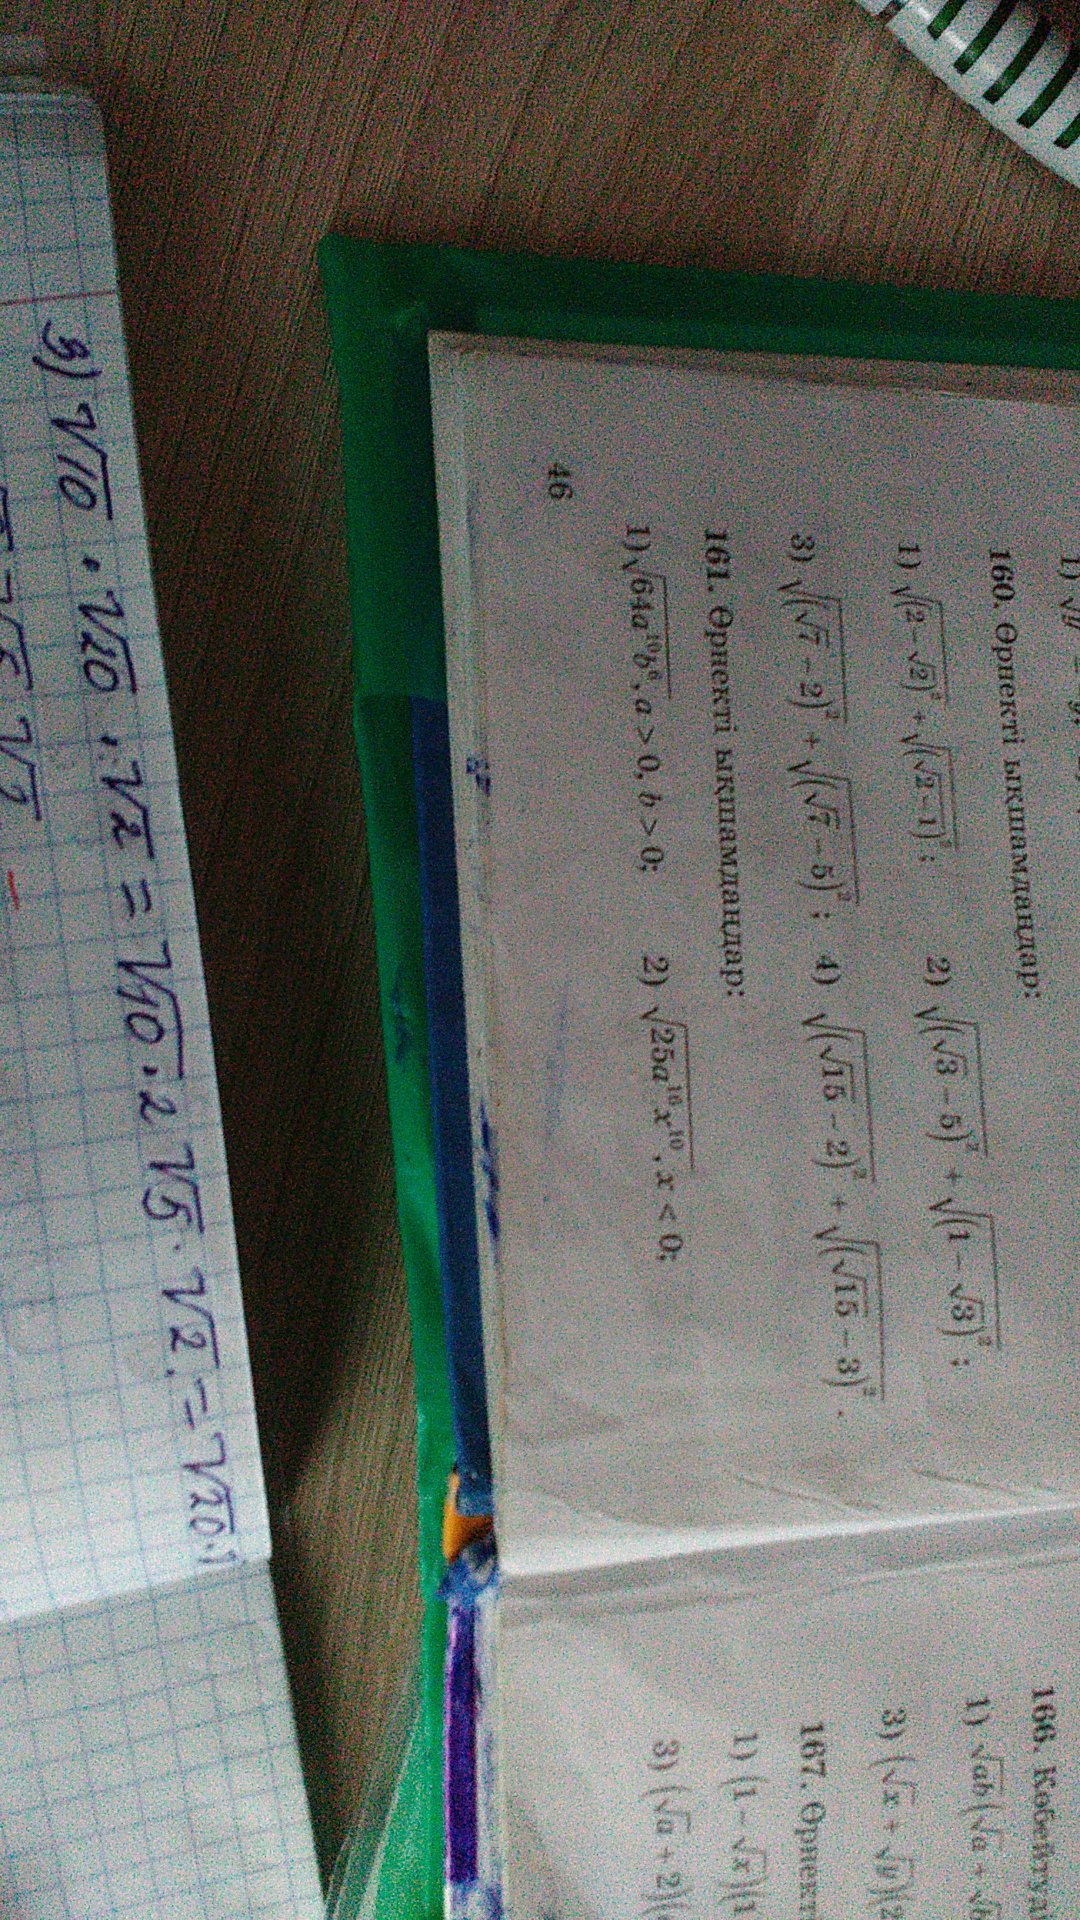 160. Өрнекті ықшамдаңдар:
1) √(2 − √2)² + √(√2 − 1)² ; 2) √(√3 − 5)² + √(1 − √3)² ;
3) √(√7 − 2)² + √(√7 − 5)² ; 4) √(√15 − 2)² + √(√15 − 3)² .
161. Өрнекті ықшамдаңдар:
1) √64a¹⁰b⁶, a > 0, b > 0; 2) √25a¹⁶x¹⁰, x < 0;
46
166.
1) √ab(√a +
3) (√x + √y)(2
167.
1) (1 − √x)(1
3) (√a + 2)(
√10 · √20 · √2 = √10 · 2√5 · √2 = √20